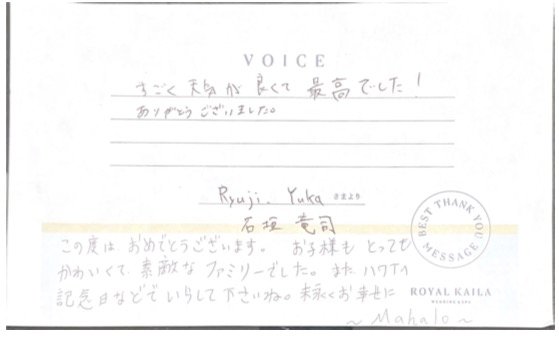 VOICE
すごく天気が良くて最高でした!
ありがとうございました。
Ryuji. Yuka さまより
石垣 竜司
この度は おめでとうございます。 お子様も とっても
かわいくて 素敵な ファミリーでした。また ハワイへ
記念日などで いらして下さいね。末永くお幸せに
~ Mahalo ~
BEST THANK YOU MESSAGE
ROYAL KAILA
WEDDING & SPA